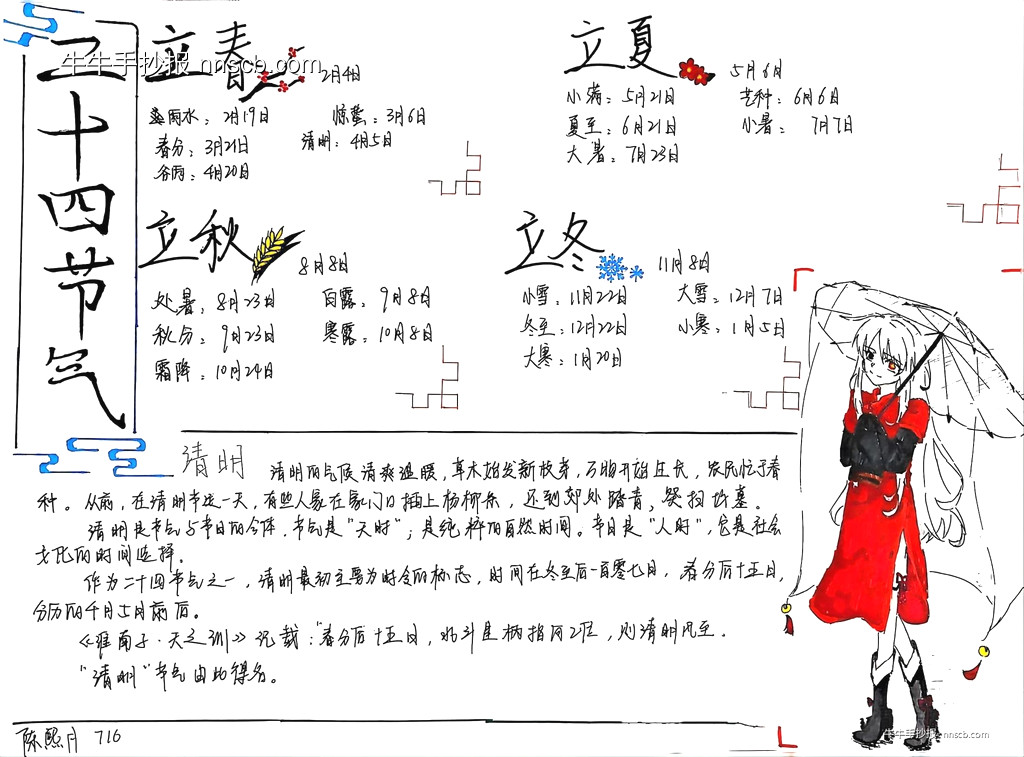 二十四节气
牛牛手抄报 nnscb.com
立春 2月4日
雨水：2月19日 惊蛰：3月6日
春分：3月21日 清明：4月5日
谷雨：4月20日
立夏 5月6日
小满：5月21日 芒种：6月6日
夏至：6月21日 小暑：7月7日
大暑：7月23日
立秋 8月8日
处暑：8月23日 白露：9月8日
秋分：9月23日 寒露：10月8日
霜降：10月24日
立冬 11月8日
小雪：11月22日 大雪：12月7日
冬至：12月22日 小寒：1月5日
大寒：1月20日
清明 清明的气候清爽温暖，草木始发新枝芽，万物开始生长，农民忙于春
种。从前，在清明节这一天，有些人家在家门口插上杨柳条，还到郊外踏青，祭扫坟墓。
清明是节气与节日的合体，节气是“天时”；是纯粹的自然时间。节日是“人时”，它是社会
文化的时间选择。
作为二十四节气之一，清明最初主要为时令的标志，时间在冬至后一百零七日，春分后十五日，
公历的4月5日前后。
《淮南子·天文训》记载：“春分后十五日，北斗星柄指向乙位，则清明风至。
“清明”节气由此得名。
陈熙月 716
牛牛手抄报 nnscb.com